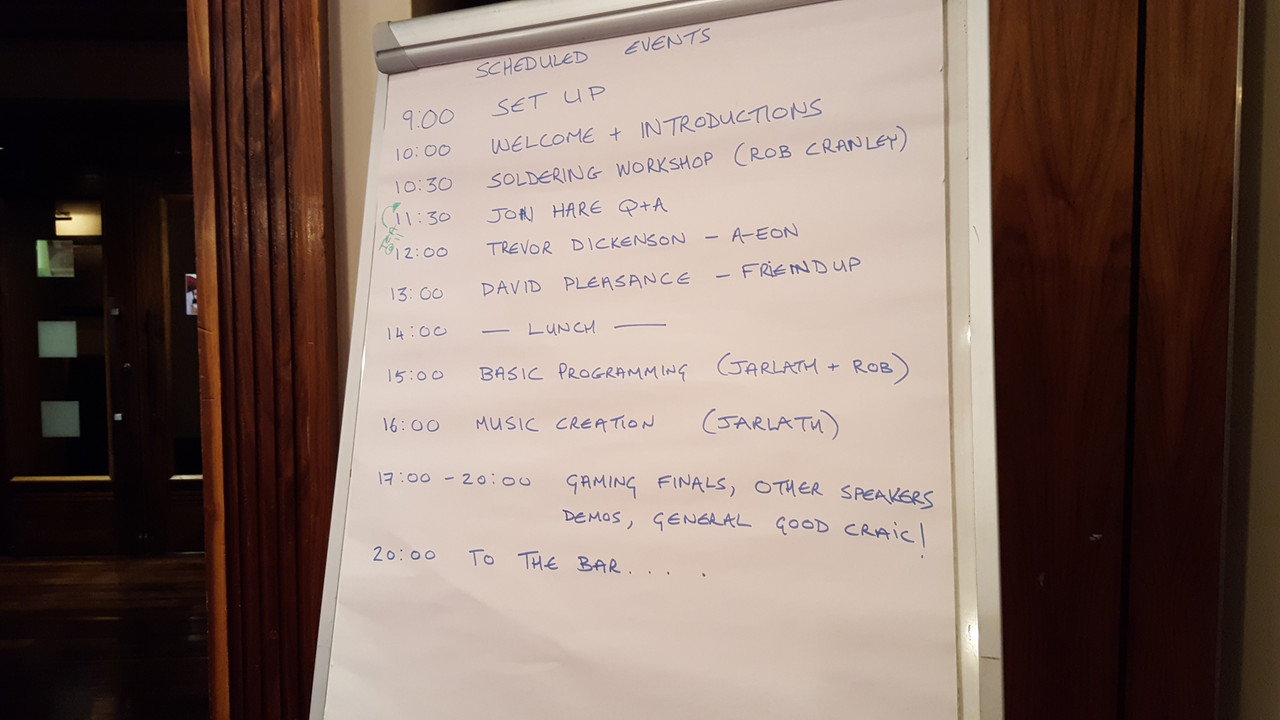 SCHEDULED EVENTS
9:00 SET UP
10:00 WELCOME + INTRODUCTIONS
10:30 SOLDERING WORKSHOP (ROB CRANLEY)
11:30 JON HARE Q+A
12:00 TREVOR DICKENSON - A-EON
13:00 DAVID PLEASANCE - FRIENDUP
14:00 — LUNCH —
15:00 BASIC PROGRAMMING (JARLATH + ROB)
16:00 MUSIC CREATION (JARLATH)
17:00 - 20:00 GAMING FINALS, OTHER SPEAKERS
DEMOS, GENERAL GOOD CRAIC!
20:00 TO THE BAR.....